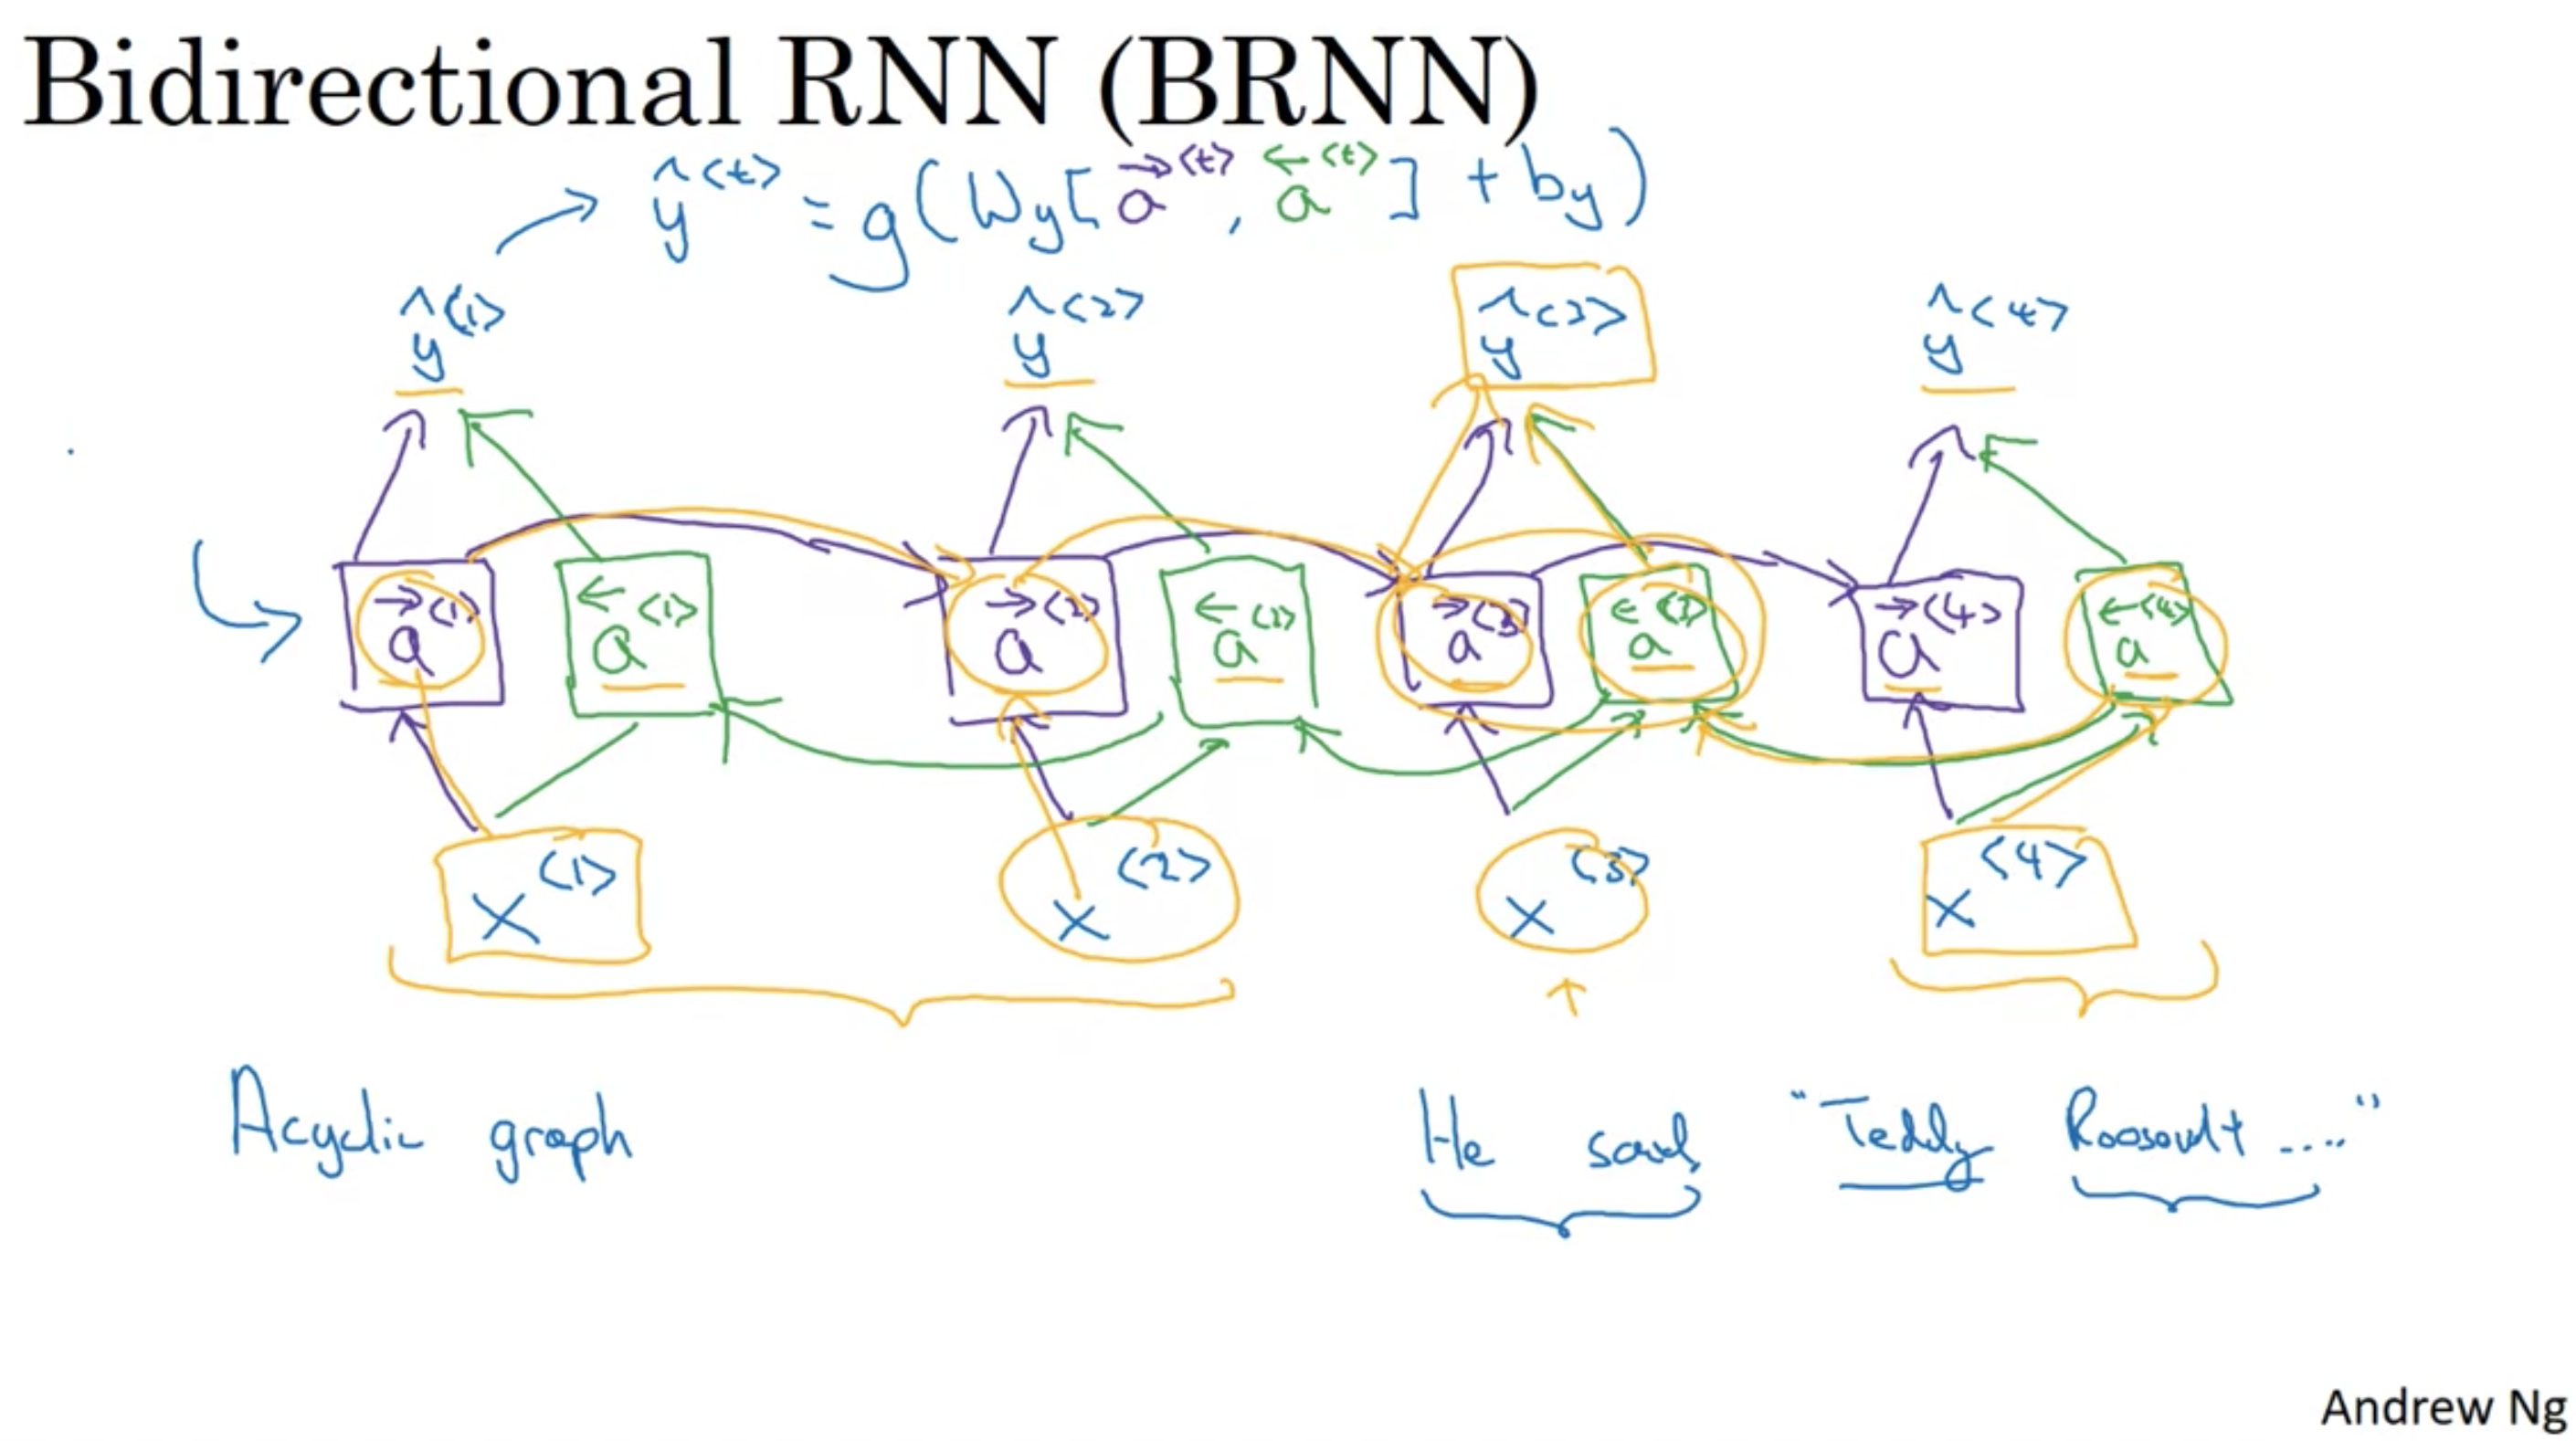 Bidirectional RNN (BRNN)
ŷ<t> = g(Wy[a→<t>, a←<t>] + by)
ŷ<1> ŷ<2> ŷ<3> ŷ<4>
a→<1> a←<1> a→<2> a←<2> a→<3> a←<3> a→<4> a←<4>
x<1> x<2> x<3> x<4>
Acyclic graph
He said, "Teddy Roosevelt ...."
Andrew Ng